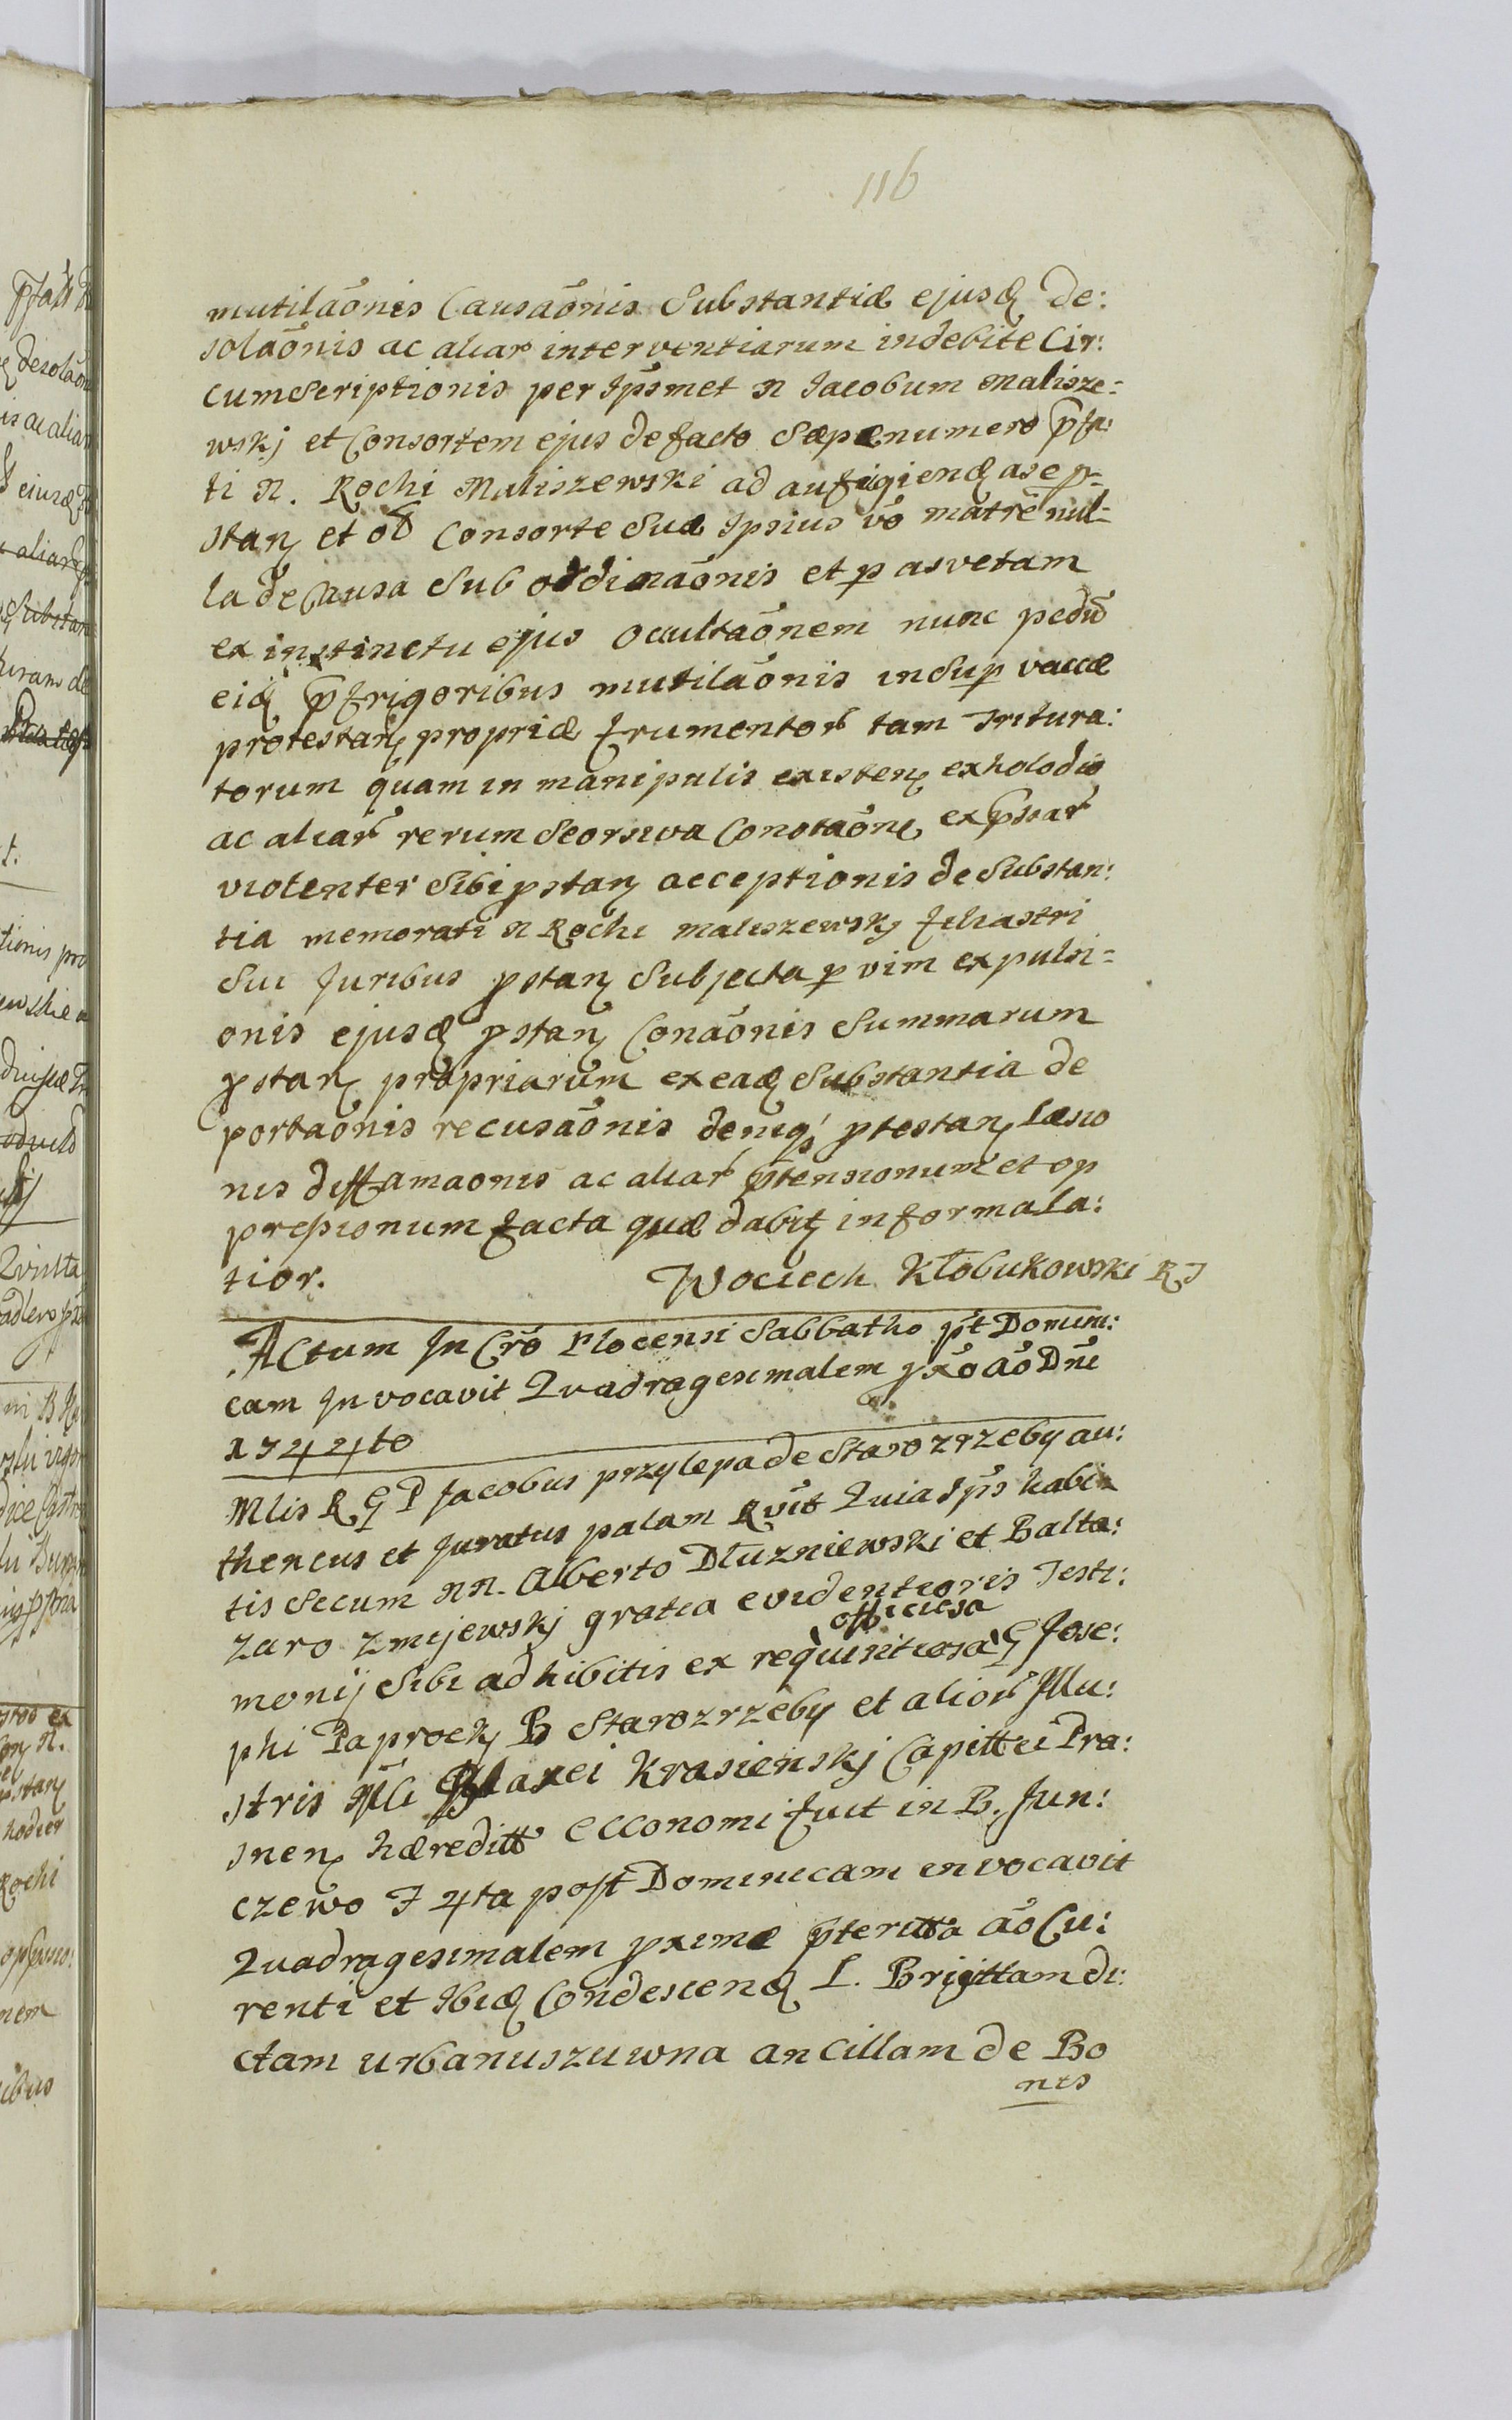 116
mutilaõnis Causaõnis Substantiæ ejusq̨ de:
solaõnis ac aliar interventiarum indebite Cir:
cumscriptionis per Ipsmet N Jacobum Malisze-
wskj et Consortem ejus de facto Sæpænumero p̃fa:
ti N. Rochi Maliszewski ad aufigienq̨ a se p-
stanς et ob Consorte Suæ Ipsius võ matrẽ nul-
la de Causa Sub ordinaõnis et p asvetam
ex instinctu ejus occultaõnem nunc pedũ
eiq̨ p̃ frigoribus mutilaõnis insup vaccæ
protestanς propriæ frumentor tam Tritura:
torum quam in manipulis existenς exholodio
ac aliar rerum Seorsiva Conotaõne expssar
violenter Sibi pstanς acceptionis de Substan:
tia memorati N Rochi Maliszewskj filiastri
Sui Juribus pstanς Subjecta p vim expulsi-
onis ejusq̨ pstanς Conaõnis Summarum
pstanς propriarum ex eaq̨ Substantia de
portaõnis recusaõnis deniq̨ ptestanς læsio
nis diffamaonis ac aliar p̃tensionum et op
pressionum facta quæ dabiτ informa la:
tior. Wociech Kłobukowski R J
Actum In Crõ Plocensi Sabbatho pt Domini:
cam Invocavit Quadragesimalem pxõ aõ Dni
1744to
Mlis R G P Jacobus przylepa de Starozrzeby au:
thencus et Juratus palam Rvit Quia Ips habi-
tis Secum NN. Alberto Dłuzniewski et Balta:
zaro Zmijewskj gratia evidentioris Testi:
monij Sibi adhibitis ex requisit officiosa G Jose:
phi Paprockj B Starozrzeby et alior Illu:
stris Mli Blasei Krasienskj Capittei Pra:
snenς hæreditt Ecconomi fuit in B. Jun:
czewo F 4ta post Dominicam invocavit
Quadragesimalem pxime p̃teritta aõ Cu:
renti et Ibiq̨ Condescenq̨ L. Brigittam di:
ctam urbanuszuwna ancillam de Bo
nis